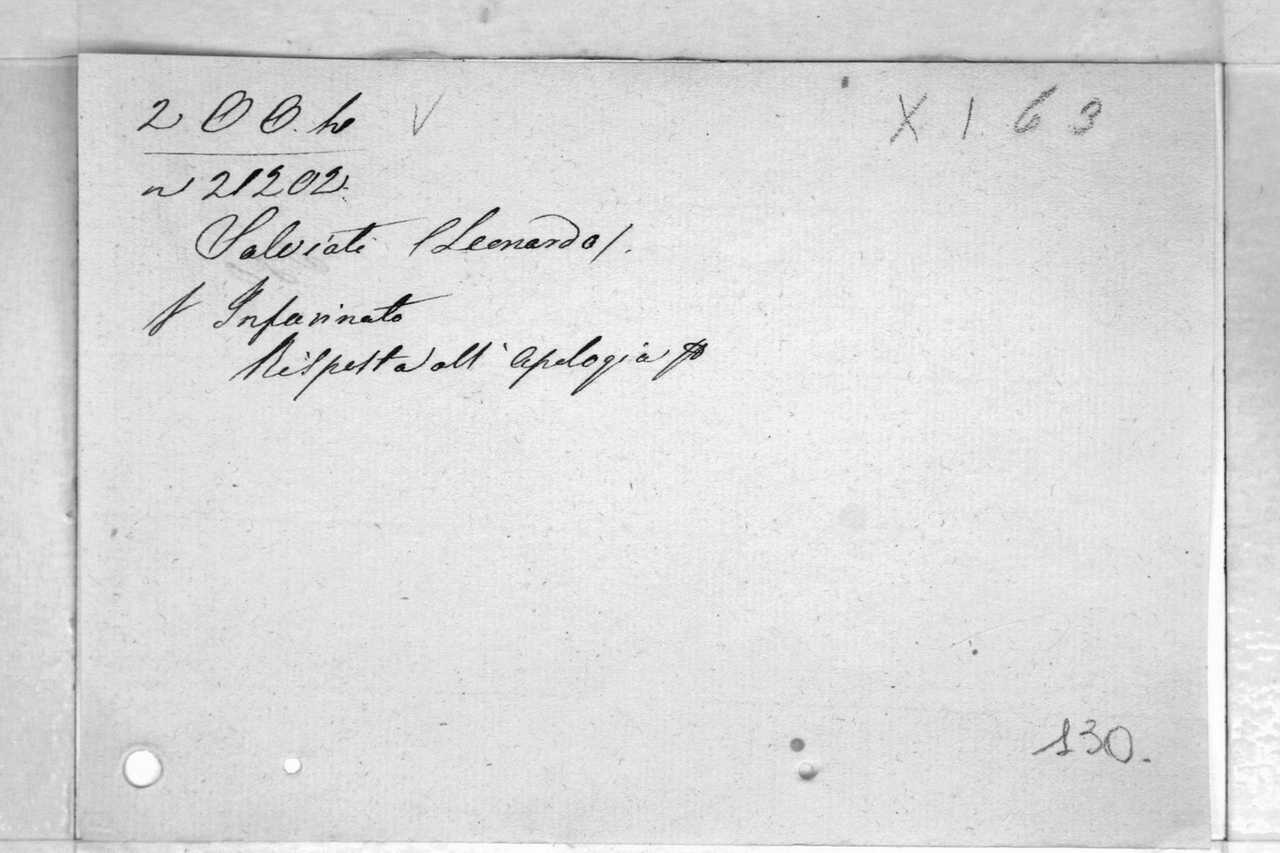 2 O O. h V X 1 6 3
n 21202.
Salviati (Leonardo).
Infarinato
Risposta all' apologia
130.